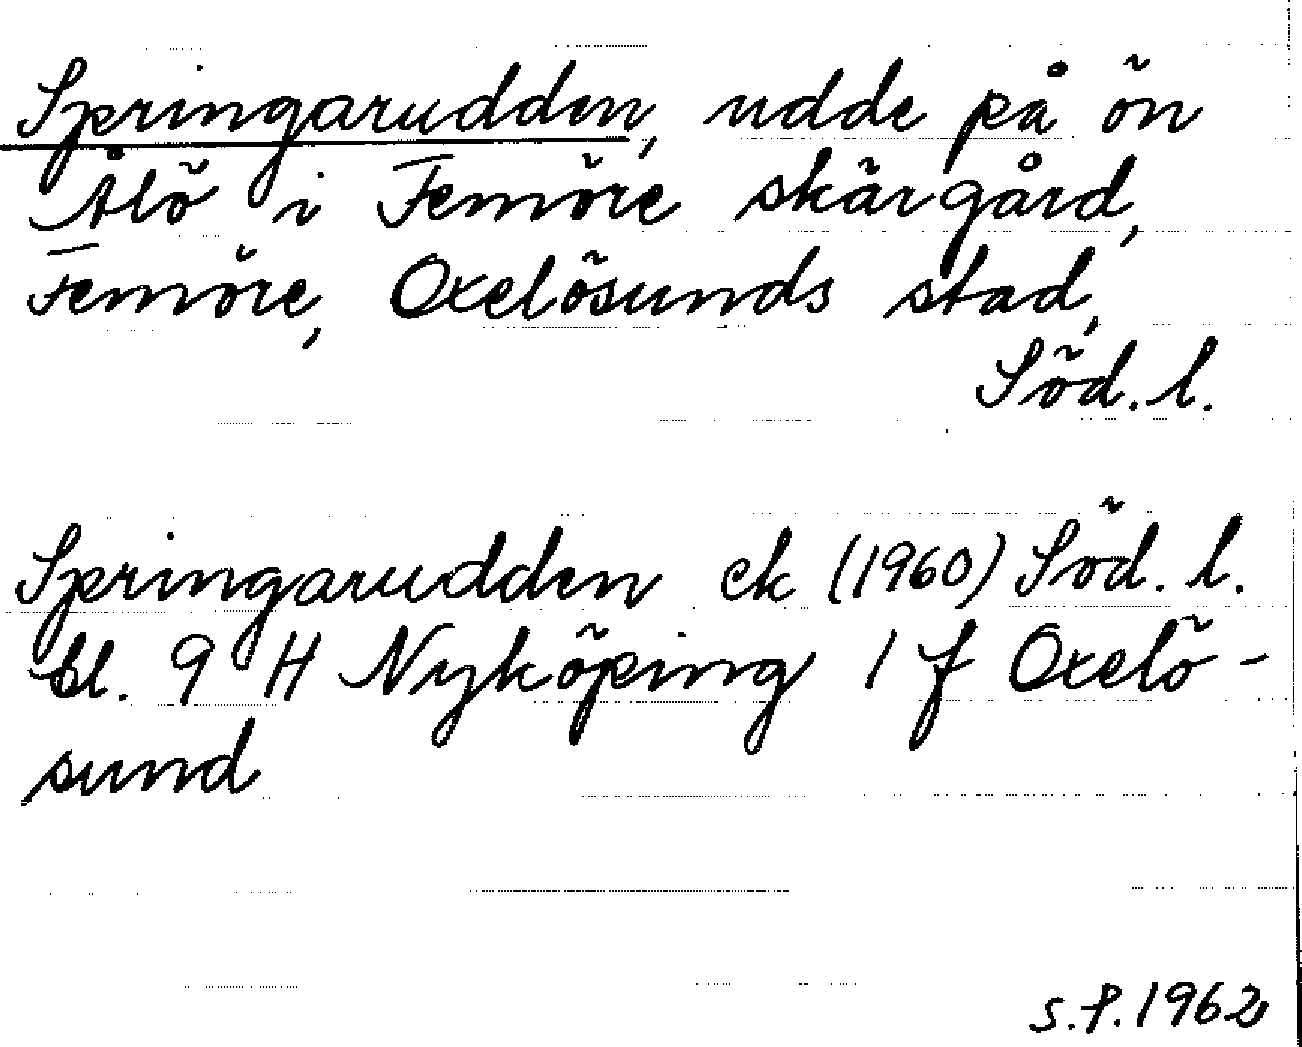 Springarudden, udde på ön
Ålö i Femöre skärgård,
Femöre, Oxelösunds stad,
Söd. l.
Springarudden ek (1960) Söd. l.
bl. 9 H Nyköping 1 f Oxelö-
sund
S.P. 1962